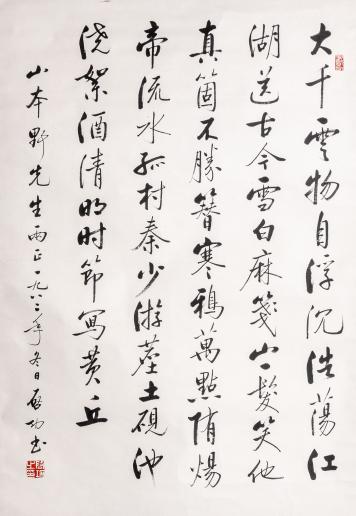 大千雲物自浮沉浩蕩江
湖送古今雪白麻箋山一髮笑他
真箇不勝簪寒鴉萬點隋煬
帝流水孤村秦少游塵土硯池
澆絮酒清明时節寫黄丘
山本野先生雨正一九八二年冬日啟功书